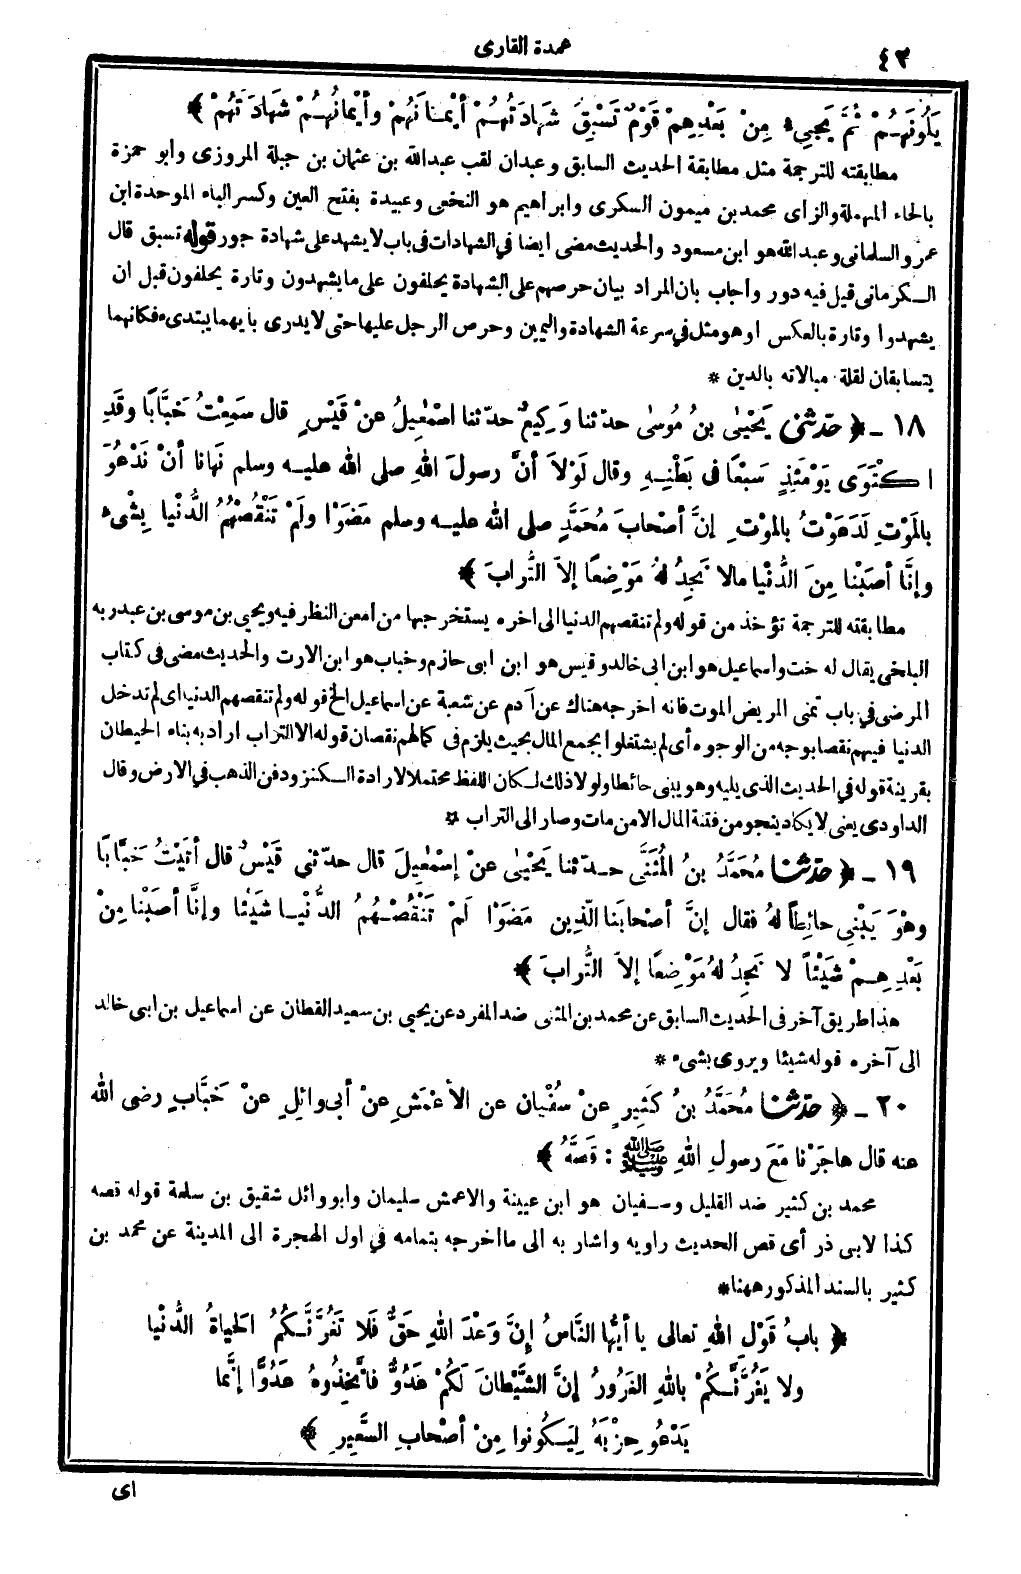 ٤٣
عمدة القارى
يَلُونَهُمْ ثُمَّ يَجِيءُ مِنْ بَعْدِهِمْ قَوْمٌ تَسْبِقُ شَهَادَتُهُمْ أَيْمَانَهُمْ وأَيْمانُهُمْ شَهادَتَهُمْ ﴾
مطابقته للترجمة مثل مطابقة الحديث السابق وعبدان لقب عبدالله بن عثمان بن جبلة المروزى وأبو حمزة
بالحاء المهملة والزاى محمد بن ميمون السكرى وابراهيم هو النخعى وعبيدة بفتح العين وكسر الباء الموحدة ابن
عمرو السلمانى وعبدالله هو ابن مسعود والحديث مضى ايضا في الشهادات فى باب لا يشهد على شهادة جور قوله تسبق قال
الكرمانى قيل فيه دور وأجاب بان المراد بيان حرصهم على الشهادة يحلفون على ما يشهدون وتارة يحلفون قبل ان
يشهدوا وتارة بالعكس او هو مثل في سرعة الشهادة واليمين وحرص الرجل عليها حتى لا يدرى بأيهما يبتدىء فكانهما
يتسابقان لقلة مبالاته بالدين *
١٨ ـ ﴿ حَدَّثَنِي يَحْيَىٰ بنُ مُوسَىٰ حدّثنا وَكِيعٌ حدّثنا اسْمٰعِيلُ عنْ قَيْسٍ قال سَمِعْتُ خَبَّابًا وقَدِ
اكْتَوَى يَوْمَئِذٍ سَبْعًا فى بَطْنِهِ وقال لَوْلاَ أنَّ رسولَ اللهِ صلى الله عليه وسلم نَهانا أنْ نَدْعُوَ
بالمَوْتِ لَدَعَوْتُ بالمَوْتِ إنَّ أصْحابَ مُحَمَّدٍ صلى الله عليه وسلم مَضَوْا ولَمْ تَنْقُصْهُمُ الدُّنْيا بِشَىْءٍ
وإنَّا أصَبْنا مِنَ الدُّنْيا مالا نَجِدُ لَهُ مَوْضِعًا إلاَّ التُّرابَ ﴾
مطابقته للترجمة تؤخذ من قوله ولم تنقصهم الدنيا الى اخره يستخرجها من أمعن النظر فيه ويحيى بن موسى بن عبدربه
البلخى يقال له خت واسماعيل هو ابن ابى خالد وقيس هو ابن ابى حازم وخباب هو ابن الارت والحديث مضى فى كتاب
المرضى في باب تمنى المريض الموت فانه اخرجه هناك عن آدم عن شعبة عن اسماعيل الخ قوله ولم تنقصهم الدنيا اى لم تدخل
الدنيا فيهم نقصا بوجه من الوجوه أى لم يشتغلوا بجمع المال بحيث يلزم فى كمالهم نقصان قوله الا التراب اراد به بناء الحيطان
بقرينة قوله في الحديث الذى يليه وهو يبنى حائطا ولولا ذلك لكان اللفظ محتملا لارادة الكنز ودفن الذهب في الارض وقال
الداودى يعنى لا يكاد ينجو من فتنة المال الا من مات وصار الى التراب *
١٩ ـ ﴿ حَدَّثَنَا مُحَمَّدُ بنُ المُثَنَّى حدّثنا يَحْيَىٰ عنْ إسْمٰعِيلَ قال حدّثني قَيْسٌ قال أتَيْتُ خَبَّابًا
وهْوَ يَبْنِي حائِطًا لَهُ فقال إنَّ أصْحابَنا الّذِينَ مَضَوْا لَمْ تَنْقُصْهُمُ الدُّنْيا شَيْئًا وإنَّا أصَبْنا مِنْ
بَعْدِهِمْ شَيْئًا لا نَجِدُ لَهُ مَوْضِعًا إلاَّ التُّرابَ ﴾
هذا طريق آخر فى الحديث السابق عن محمد بن المثنى ضد المفرد عن يحيى بن سعيد القطان عن اسماعيل بن ابى خالد
الى آخره قوله شيئا ويروى بشىء *
٢٠ ـ ﴿ حَدَّثَنَا مُحَمَّدُ بنُ كَثِيرٍ عنْ سُفْيان عن الأعْمَشِ عنْ أبى وائِلٍ عنْ خَبَّابٍ رضى الله
عنه قال هاجَرْنا مَعَ رسولِ اللهِ ﷺ : قَصَّهُ ﴾
محمد بن كثير ضد القليل وسفيان هو ابن عيينة والاعمش سليمان وابو وائل شقيق بن سلمة قوله قصه
كذا لابى ذر أى قص الحديث راويه واشار به الى ما اخرجه بتمامه في اول الهجرة الى المدينة عن محمد بن
كثير بالسند المذكور ههنا *
﴿ بابُ قَوْلِ اللهِ تعالى يا أيُّها النَّاسُ إنَّ وَعْدَ اللهِ حَقٌّ فَلا تَغُرَّنَّكُمُ الحَياةُ الدُّنْيا
ولا يَغُرَّنَّكُمْ باللهِ الغَرُورُ إنَّ الشَّيْطانَ لَكُمْ عَدُوٌّ فاتَّخِذُوهُ عَدُوًّا إنَّما
يَدْعُو حِزْبَهُ لِيَكُونوا مِنْ أصْحابِ السَّعِيرِ ﴾
اى